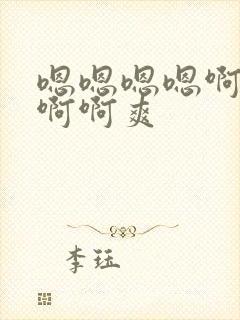 嗯嗯嗯嗯啊
啊啊爽
李珏